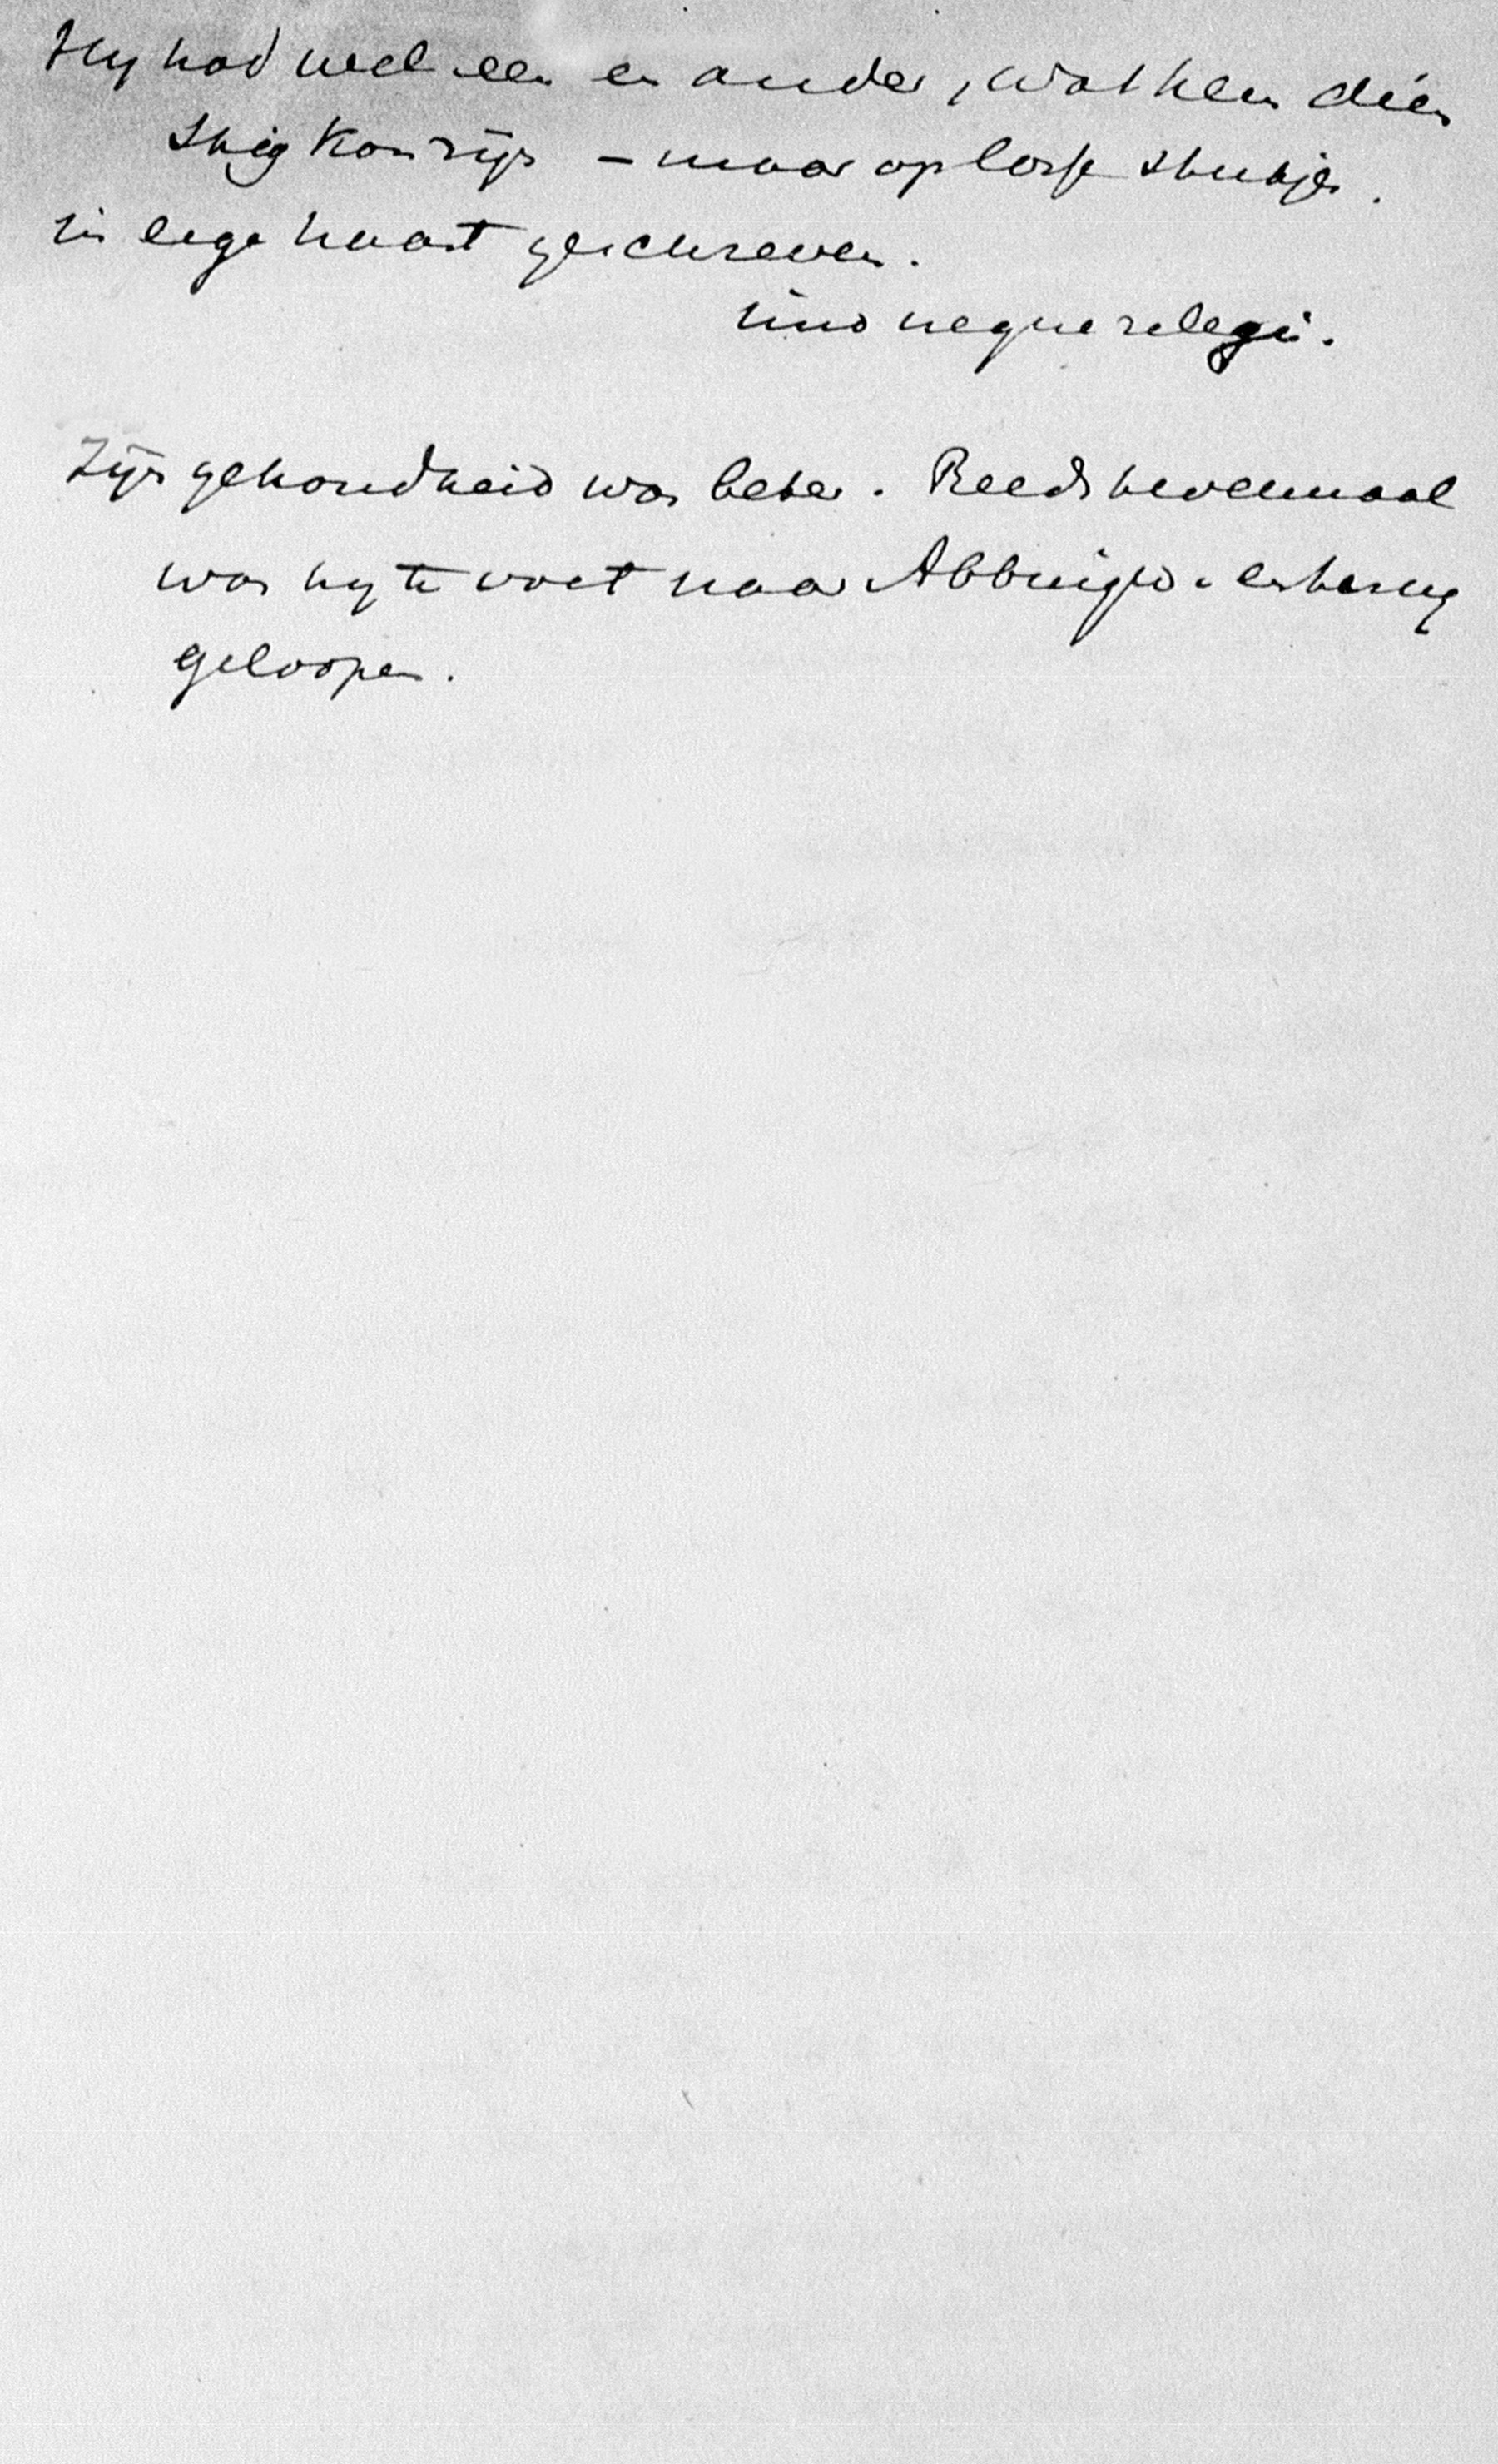 Hy had wel een en ander, wat hem dien
stig kon zijn – maar op losse stukjes.
in eige haast geschreven.
neque relegi.
Zijn gezondheid was beter. Reeds tweemaal
was hy te voet naar en terug
geloopen.